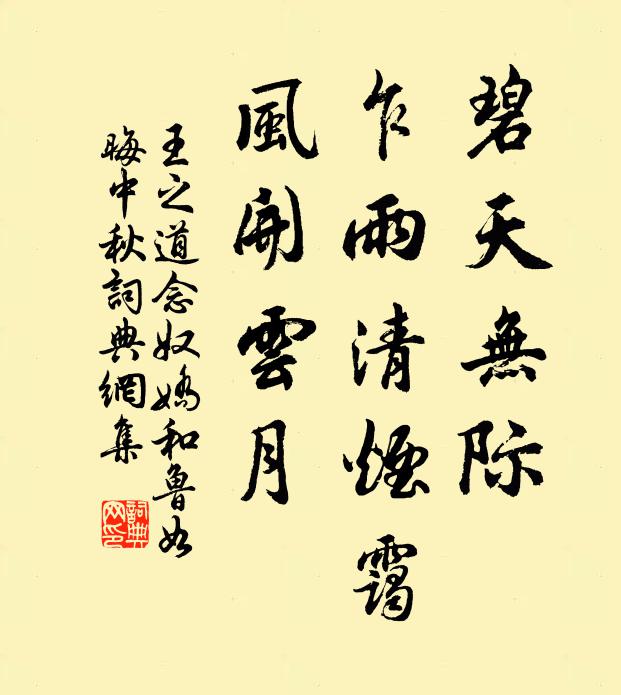 碧天無际
乍雨清煙靄
風開雲月
王之道念奴嬌和魯如
晦中秋詞典網集
詞典
网印